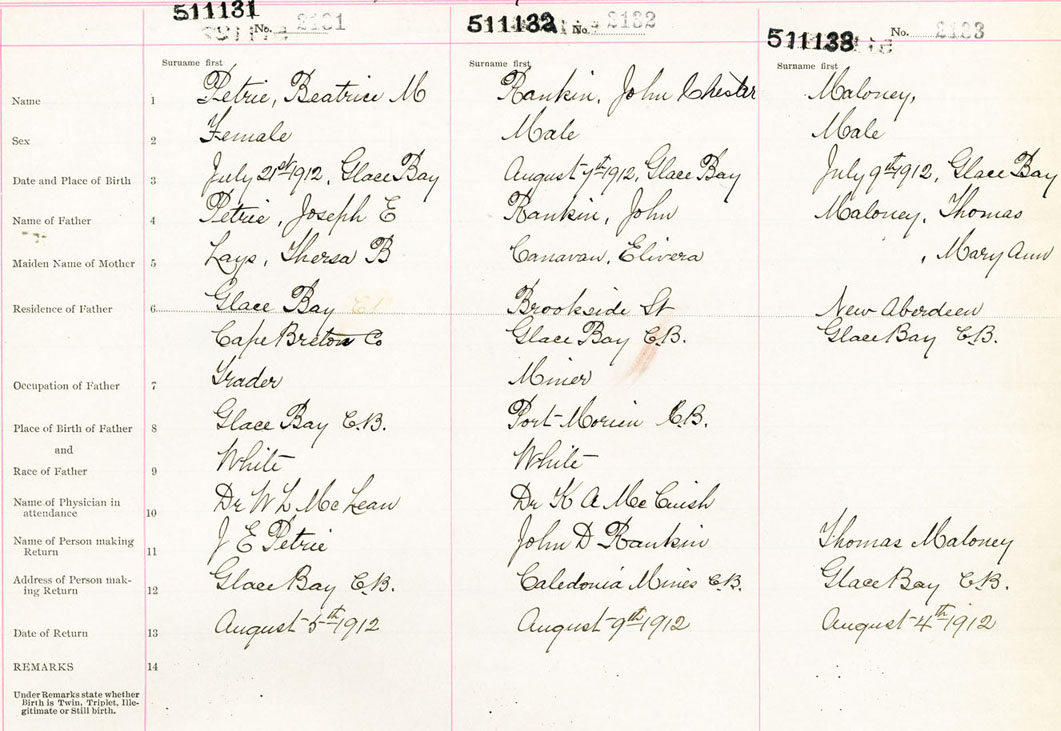 511131 No. 2131
511132 No. 2132
511133 No. 2133
Surname first Surname first Surname first
Name 1 Petrie, Beatrice M Rankin, John Chester Maloney,
Sex 2 Female Male Male
Date and Place of Birth 3 July 21st 1912, Glace Bay August 7th 1912, Glace Bay July 9th 1912, Glace Bay
Name of Father 4 Petrie, Joseph E Rankin, John Maloney, Thomas
Maiden Name of Mother 5 Lays, Thersa B Canavan, Elivera , Mary Ann
Residence of Father 6 Glace Bay Brookside St New Aberdeen
Cape Breton Co Glace Bay C.B. Glace Bay C.B.
Occupation of Father 7 Grader Miner
Place of Birth of Father 8 Glace Bay C.B. Port-Morien C.B.
and
Race of Father 9 White White
Name of Physician in
attendance 10 Dr W L McLean Dr K A McCuish
Name of Person making
Return 11 J E Petrie John D Rankin Thomas Maloney
Address of Person mak-
ing Return 12 Glace Bay C.B. Caledonia Mines C.B. Glace Bay C.B.
Date of Return 13 August 5th 1912 August 9th 1912 August 4th 1912
REMARKS 14
Under Remarks state whether
Birth is Twin, Triplet, Ille-
gitimate or Still birth.